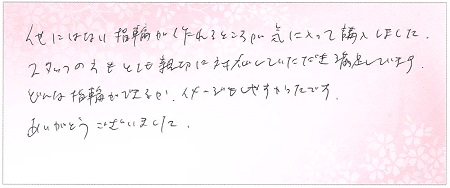 他にはない指輪が作れるところが気に入って購入しました。
スタッフの方もとても親切に対応していただき満足しています。
どんな指輪ができるか、イメージもしやすかったです。
ありがとうございました。